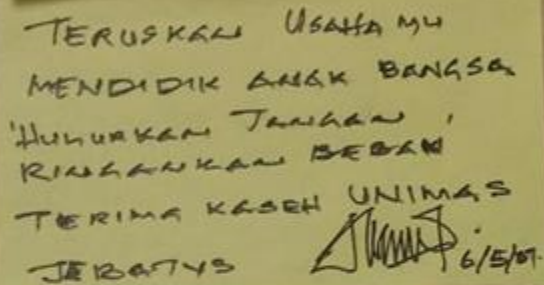 TERUSKAN USAHA MU
MENDIDIK ANAK BANGSA
'HULURKAN TANGAN,
RINGANKAN BEBAN'
TERIMA KASEH UNIMAS
6/5/07.